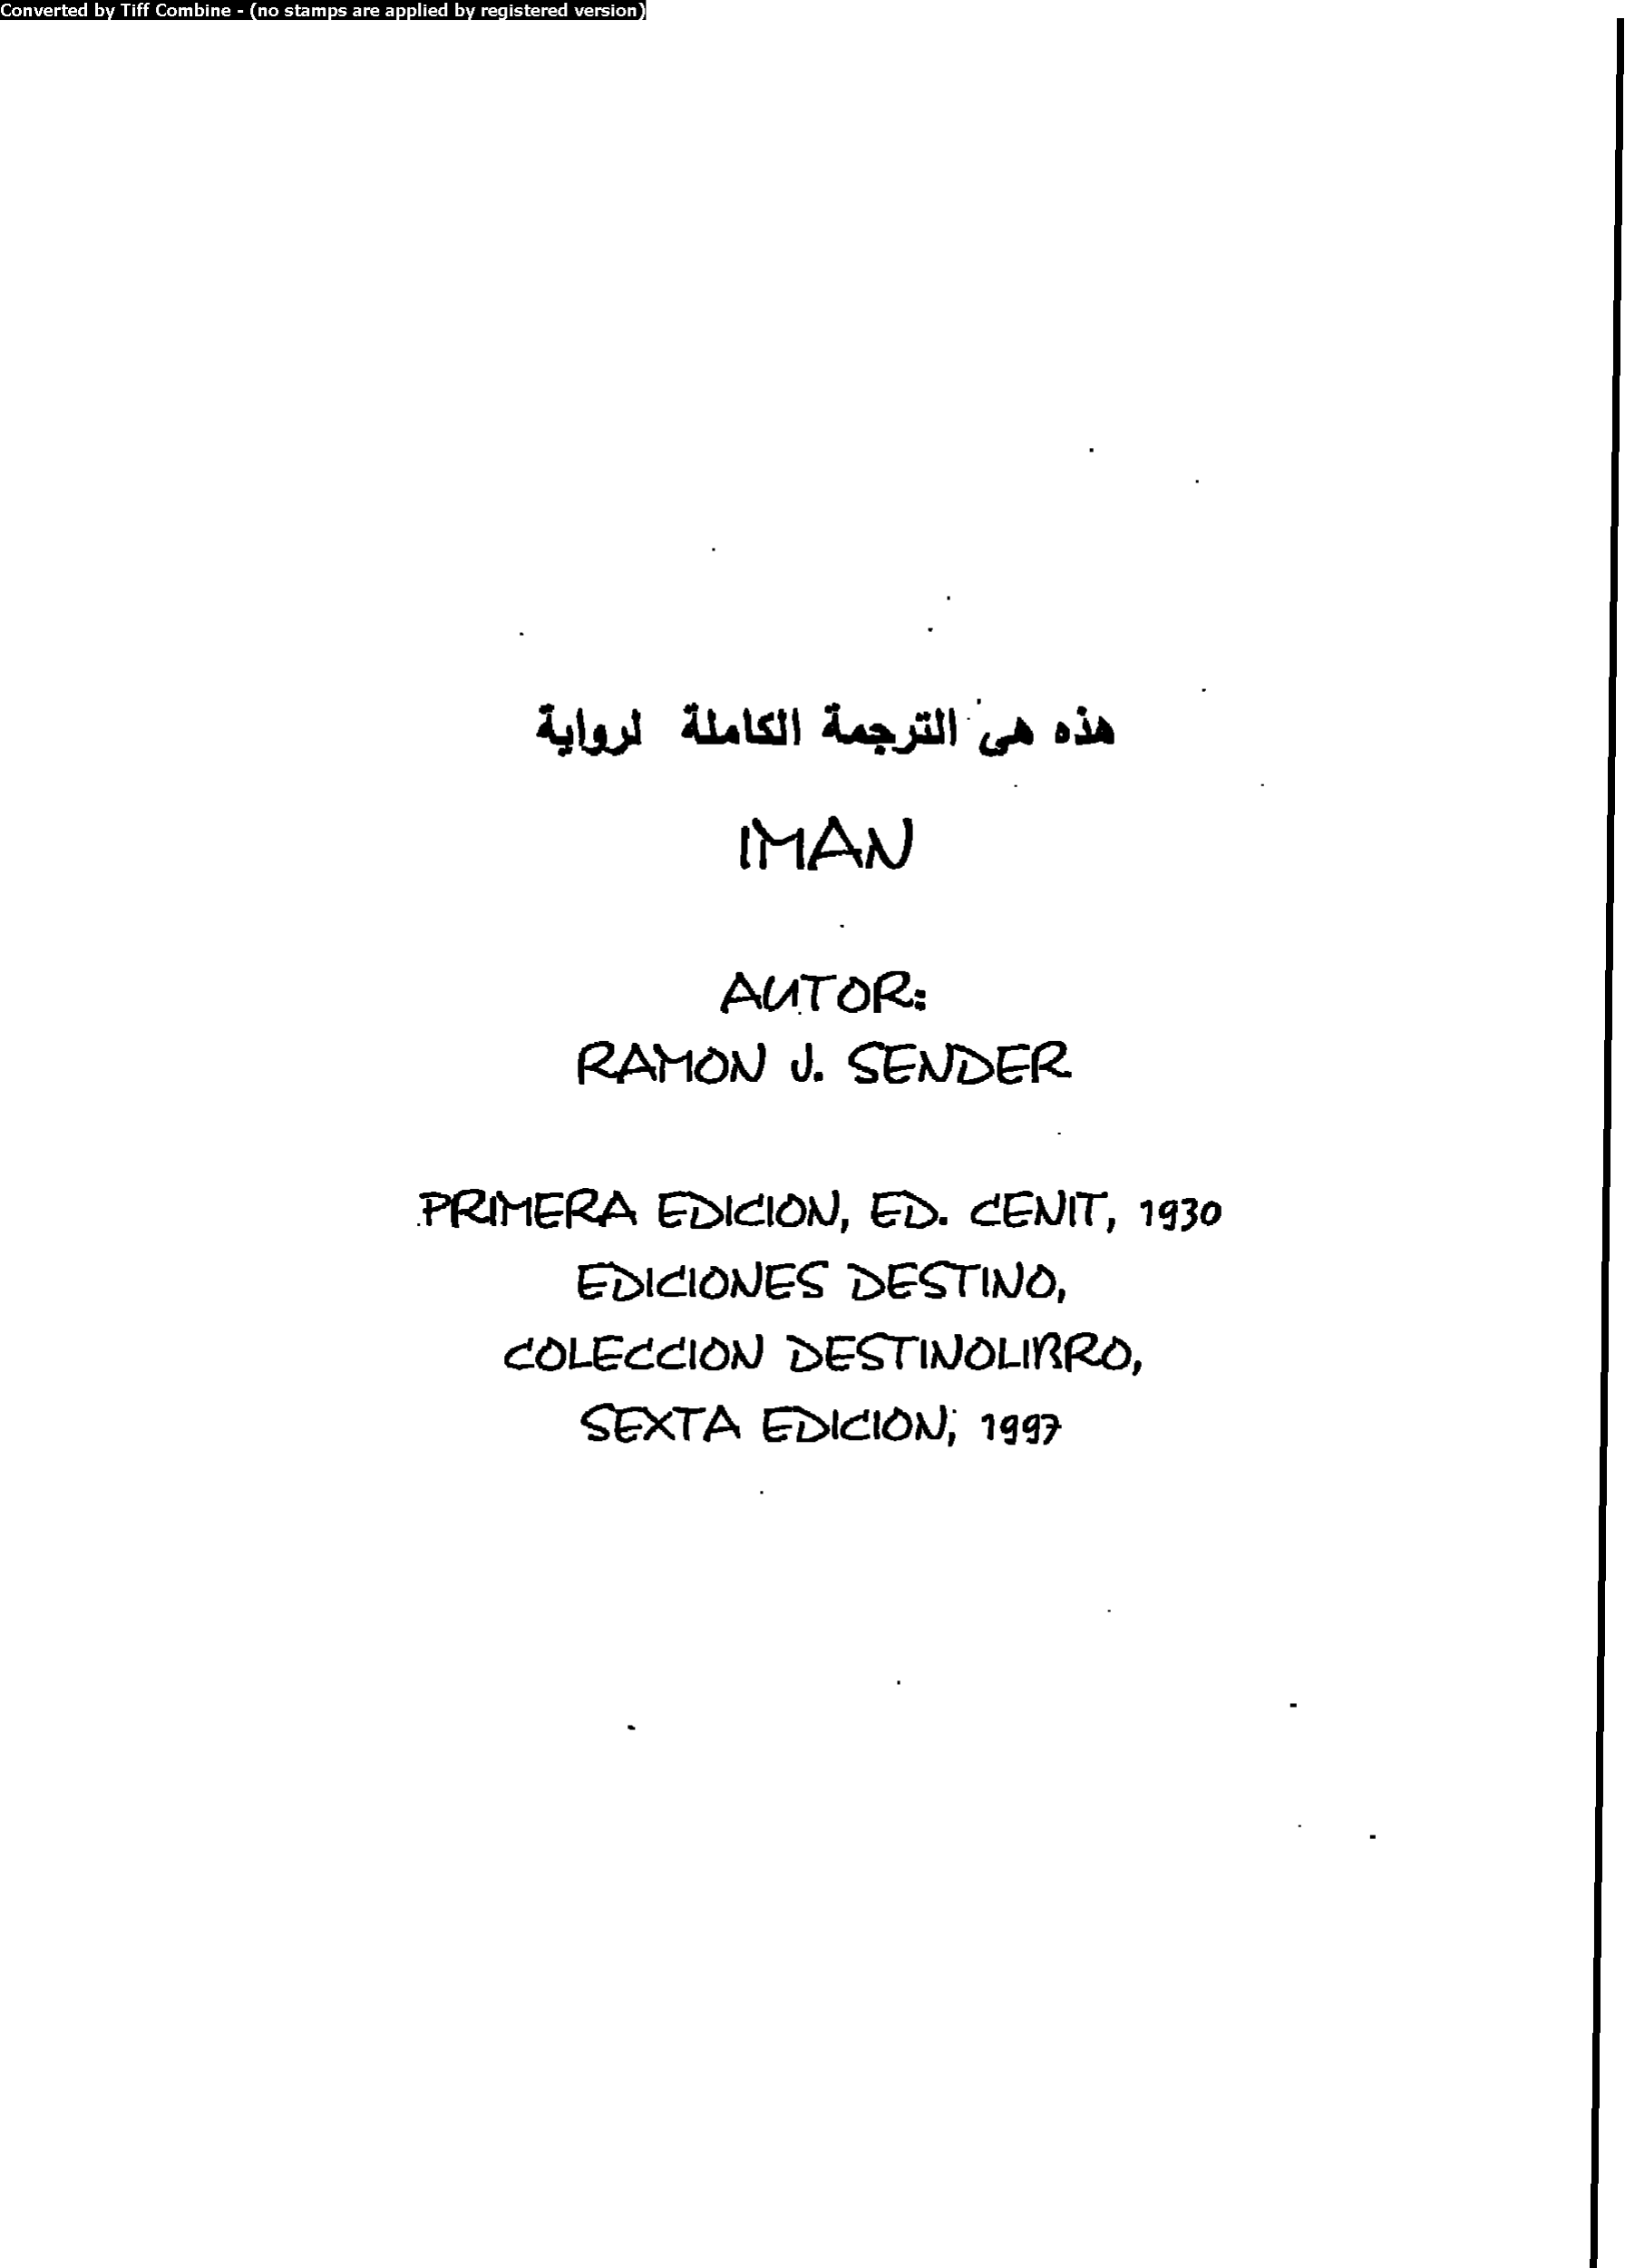 Converted by Tiff Combine - (no stamps are applied by registered version)
هذه هى الترجمة الكاملة لرواية
IMAN
AUTOR:
RAMON J. SENDER
PRIMERA EDICION, ED. CENIT, 1930
EDICIONES DESTINO,
COLECCION DESTINOLIBRO,
SEXTA EDICION, 1997